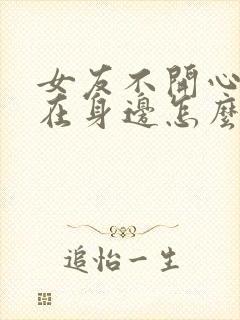 女友不開心
在身邊怎麼
追怡一生